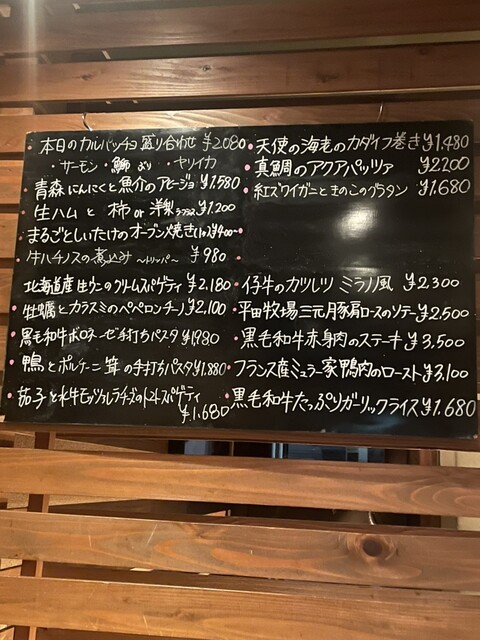 本日のカルパッチョ盛り合わせ ¥2,080
・サーモン ・鰤 ・ヤリイカ
青森にんにくと魚介のアヒージョ ¥1,580
生ハムと柿or洋梨 ¥1,200
まるごとしいたけのオーブン焼き ¥400
牛ハチノスの煮込み ~トリッパ~ ¥980
北海道産生ウニのクリームスパゲティ ¥2,180
牡蠣とカラスミのペペロンチーノ ¥2,100
黒毛和牛ボロネーゼ手打ちパスタ ¥1,980
鴨とポルチーニ茸の手打ちパスタ ¥1,880
茄子と水牛モッツァレラチーズのトマトスパゲティ
¥1,680
天使の海老のカダイフ巻き ¥1,480
真鯛のアクアパッツァ ¥2200
紅ズワイガニときのこのグラタン ¥1,680
仔牛のカツレツ ミラノ風 ¥2,300
平田牧場三元豚肩ロースのソテー ¥2,500
黒毛和牛赤身肉のステーキ ¥3,500
フランス産ミュラー家鴨肉のロースト ¥3,100
黒毛和牛たっぷりガーリックライス ¥1,680